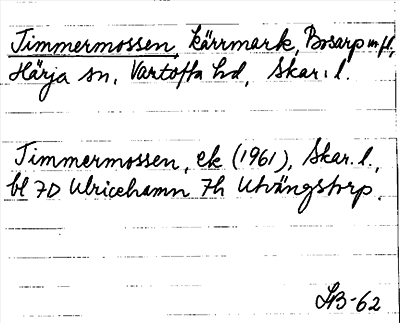 Timmermossen, kärrmark, Bosarp m fl,
Härja sn, Vartofta hd, Skar. l.
Timmermossen, ek (1961), Skar. l.,
bl 7D Ulricehamn 7h Utvängstorp.
LB-62